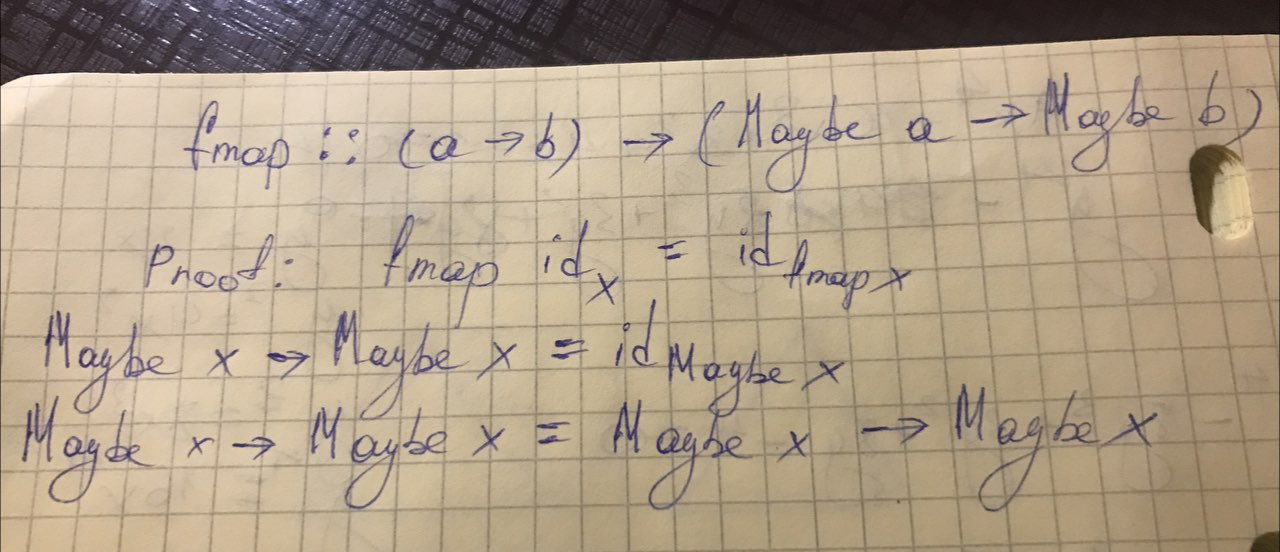 fmap :: (a → b) → (Maybe a → Maybe b)
Proof: fmap id_x = id_fmap x
Maybe x → Maybe x = id_Maybe x
Maybe x → Maybe x = Maybe x → Maybe x